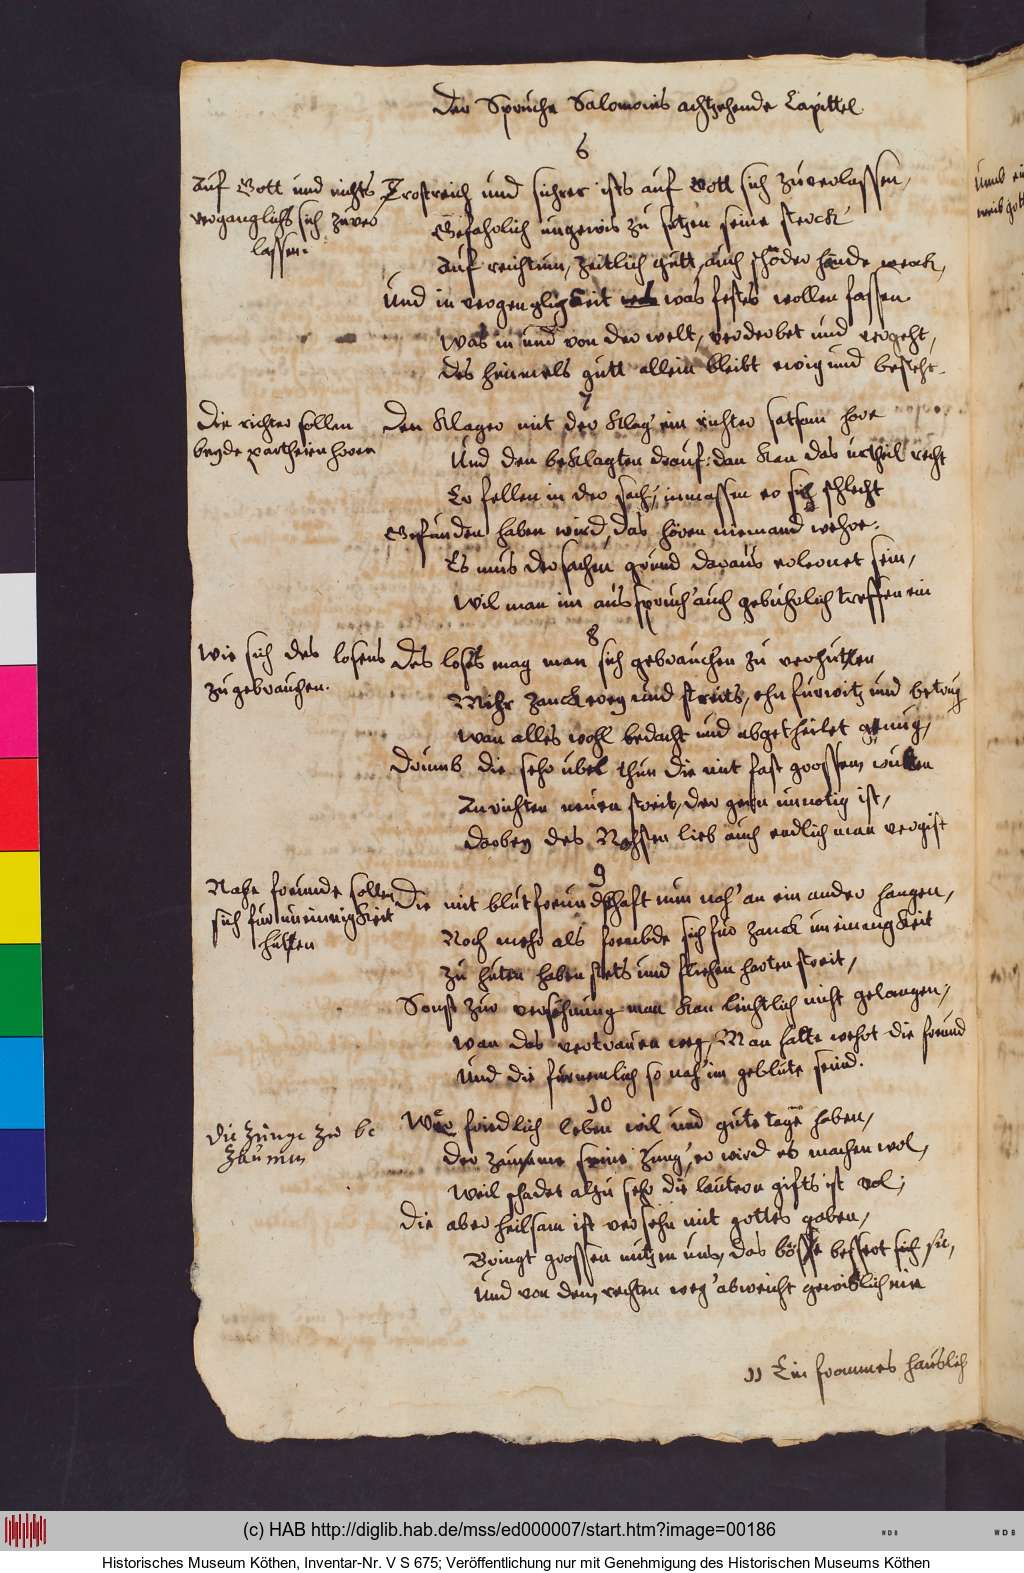 Der Spruche Salomonis achtzehende Capittel
6
Auf Gott und nichts
verganglichs sich zuver
lassen.
Trostreich und sichrer ists auf Gott sich zuverlassen,
Gefahrlich ungewis zu setzen seine sterck
Auf reichtum, zeitlich gutt, auch schöder hände werck,
Und in vergengligkeit was festes wollen fassen.
Was in und von der welt, verderbet und vergeht,
des himmels gutt allein bleibt ewig und besteht.
7
Die richter sollen
beyde partheien horen
Den Klager mit der Klag' ein richter satsam hore
Und den beklagten drauf: dan kan das urtheil recht
Er fellen in der sach', inmassen er sich schlecht
Gefunden haben wird, das hören niemand wehre:
Es mus der sachen grund daraus erlernet sein,
Wil man im ausspruch' auch gebuhrlich treffen ein
8
Wie sich des losens
zugebrauchen.
Des loses mag man sich gebrauchen zu verhutten
Mehr zanckerey und streits, ohn furwitz und betrug
wan alles wohl bedacht und abgetheilet genug,
Drumb die sehr ubel thun die mit fast grossem wutten
Anrichten neuen streit, der gern unnotig ist,
Darbey des Nechsten lieb auch endlich man vergist
9
Nahe freunde sollen
sich fur uneinigkeit
hutten
Die mit blutfreundschafft nun nah' an ein ander hangen,
Noch mehr als frembde sich fur zanck un einingkeit
zu huten haben stets und fliehen harten streit,
Sonst zur versöhnung man kan leichtlich nicht gelangen;
wan das vertrauen weg, Man halte wehrt die freund
Und die furnemlich so nah' im geblüte seind.
10
Die Zunge zu be
Zäumen
Wer friedlich leben wil und gute tage haben,
der zeume seine zung', er wird es machen wol,
Weil schadet alzu sehr die lauter gifts ist vol;
Die aber heilsam ist versehn mit gottes gaben,
Bringt grossen nutzen uns, das böse bessert sich hie,
Und von dem rechten weg' abweicht gewislich nie
11 Ein frommes hauslich
Umb
(c) HAB http://diglib.hab.de/mss/ed000007/start.htm?image=00186
WDB
WDB
Historisches Museum Köthen, Inventar-Nr. V S 675; Veröffentlichung nur mit Genehmigung des Historischen Museums Köthen